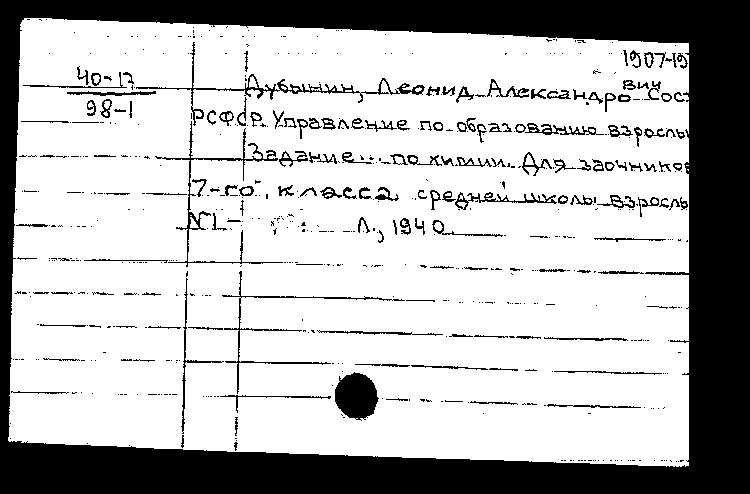 1907-19
40-17
98-1
Дубынин, Леонид Александрович Сост
РСФСР. Управление по образованию взрослы
Задание... по химии. Для заочников
7-го, класса средней школы взрослы
№1- Л., 1940.